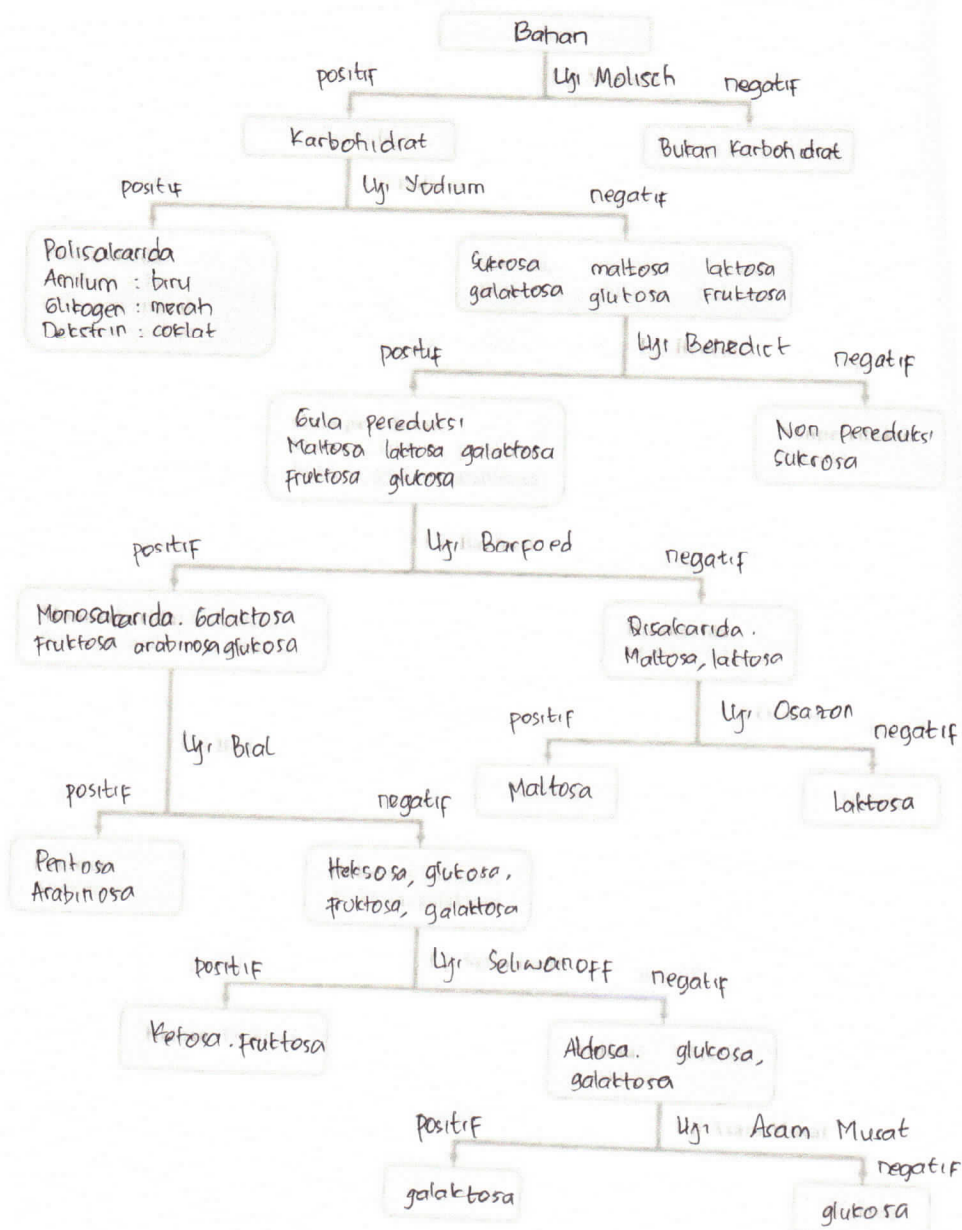 Bahan
positif
Uji Molisch
negatif
Karbohidrat
Bukan Karbohidrat
positif
Uji Yodium
negatif
Polisakarida
Amilum : biru
Glikogen : merah
Dekstrin : coklat
Sukrosa maltosa laktosa
galaktosa glukosa Fruktosa
positif
Uji Benedict
negatif
Gula pereduksi
Maltosa laktosa galaktosa
Fruktosa glukosa
Non pereduksi
sukrosa
positif
Uji Barfoed
negatif
Monosakarida. Galaktosa
Fruktosa arabinosa glukosa
Disakarida.
Maltosa, laktosa
Uji Bial
positif
Uji Osazon
negatif
Maltosa
Laktosa
positif
negatif
Pentosa
Arabinosa
Heksosa, glukosa,
Fruktosa, galaktosa
positif
Uji Seliwanoff
negatif
Ketosa. Fruktosa
Aldosa. glukosa,
galaktosa
positif
Uji Asam Musat
negatif
galaktosa
glukosa